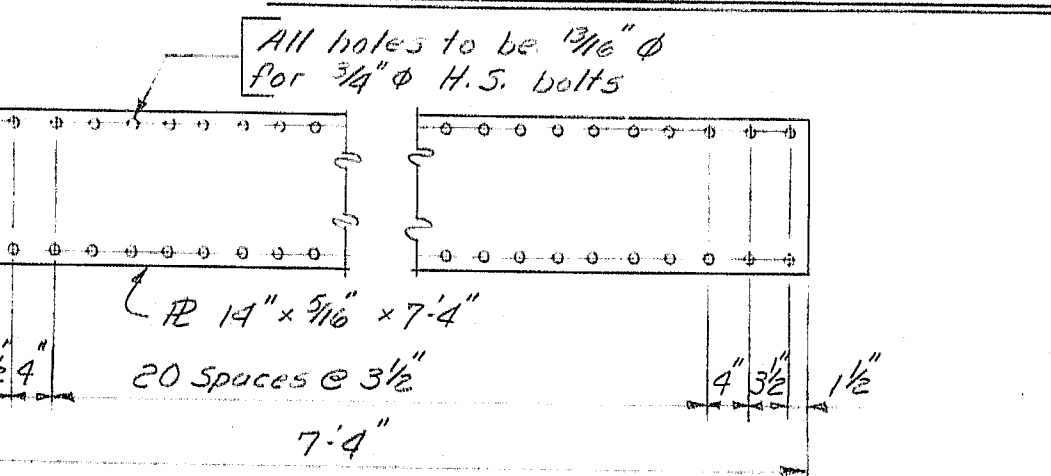 All holes to be 13/16" ϕ
for 3/4" ϕ H.S. bolts
PL 14" x 5/16" x 7'-4"
4" 20 Spaces @ 3 1/2" 4" 3 1/2" 1 1/2"
7'-4"